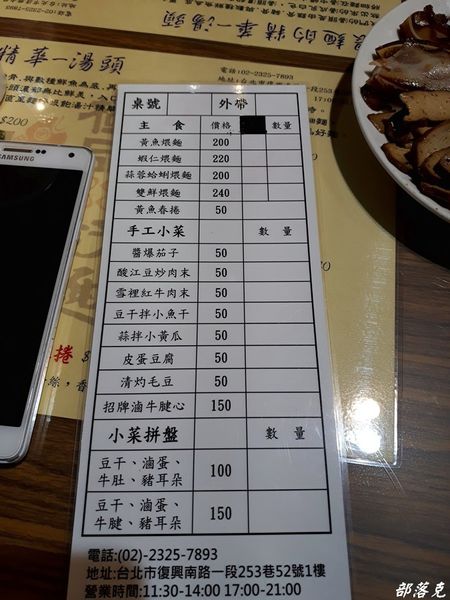 精華一湯頭
電話:02-2325-7893
$200
SAMSUNG
桌號 外帶
主食 價格 數量
黃魚煨麵 200
蝦仁煨麵 220
蒜蓉蛤蜊煨麵 200
雙鮮煨麵 240
黃魚春捲 50
手工小菜 數量
醬爆茄子 50
酸江豆炒肉末 50
雪裡紅牛肉末 50
豆干拌小魚干 50
蒜拌小黃瓜 50
皮蛋豆腐 50
清灼毛豆 50
招牌滷牛腱心 150
小菜拼盤 數量
豆干、滷蛋、
牛肚、豬耳朵 100
豆干、滷蛋、
牛腱、豬耳朵 150
電話:(02)-2325-7893
地址:台北市復興南路一段253巷52號1樓
營業時間:11:30-14:00 17:00-21:00
捲
部落克